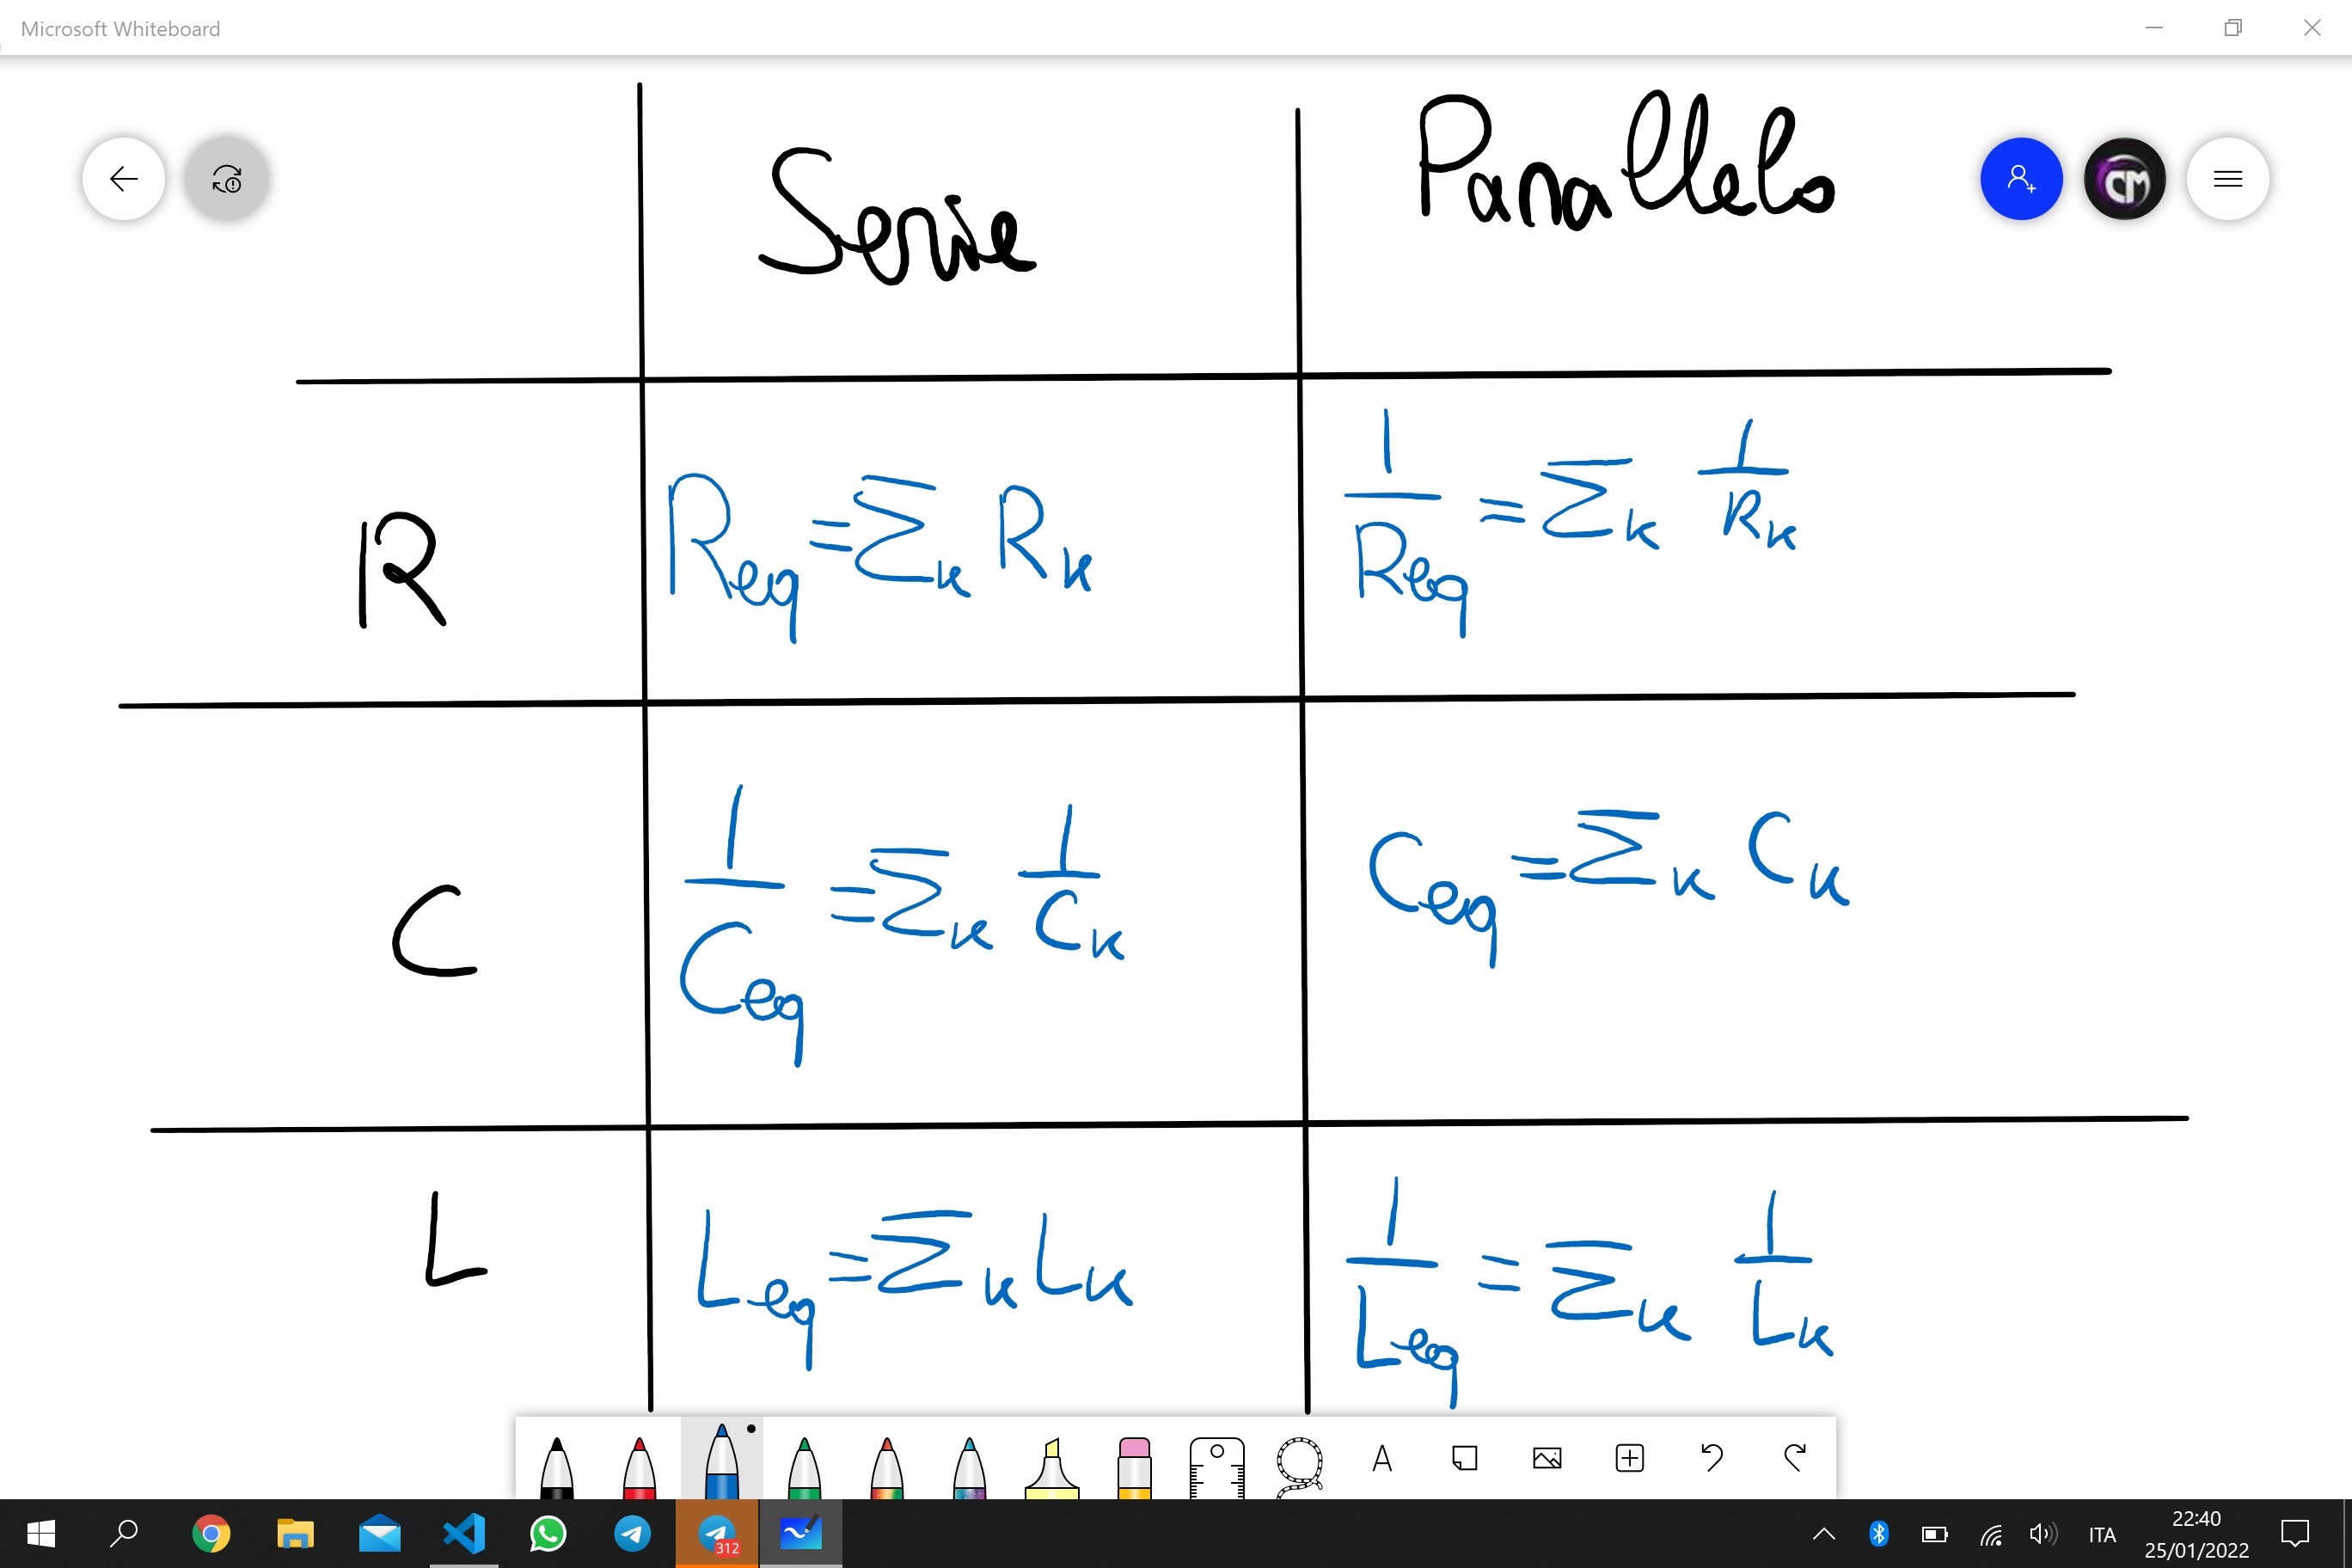 Microsoft Whiteboard
Serie Parallelo
CM
R R_eq = Σ_k R_k 1/R_eq = Σ_k 1/R_k
C 1/C_eq = Σ_k 1/C_k C_eq = Σ_k C_k
L L_eq = Σ_k L_k 1/L_eq = Σ_k 1/L_k
A
312
ITA
22:40
25/01/2022